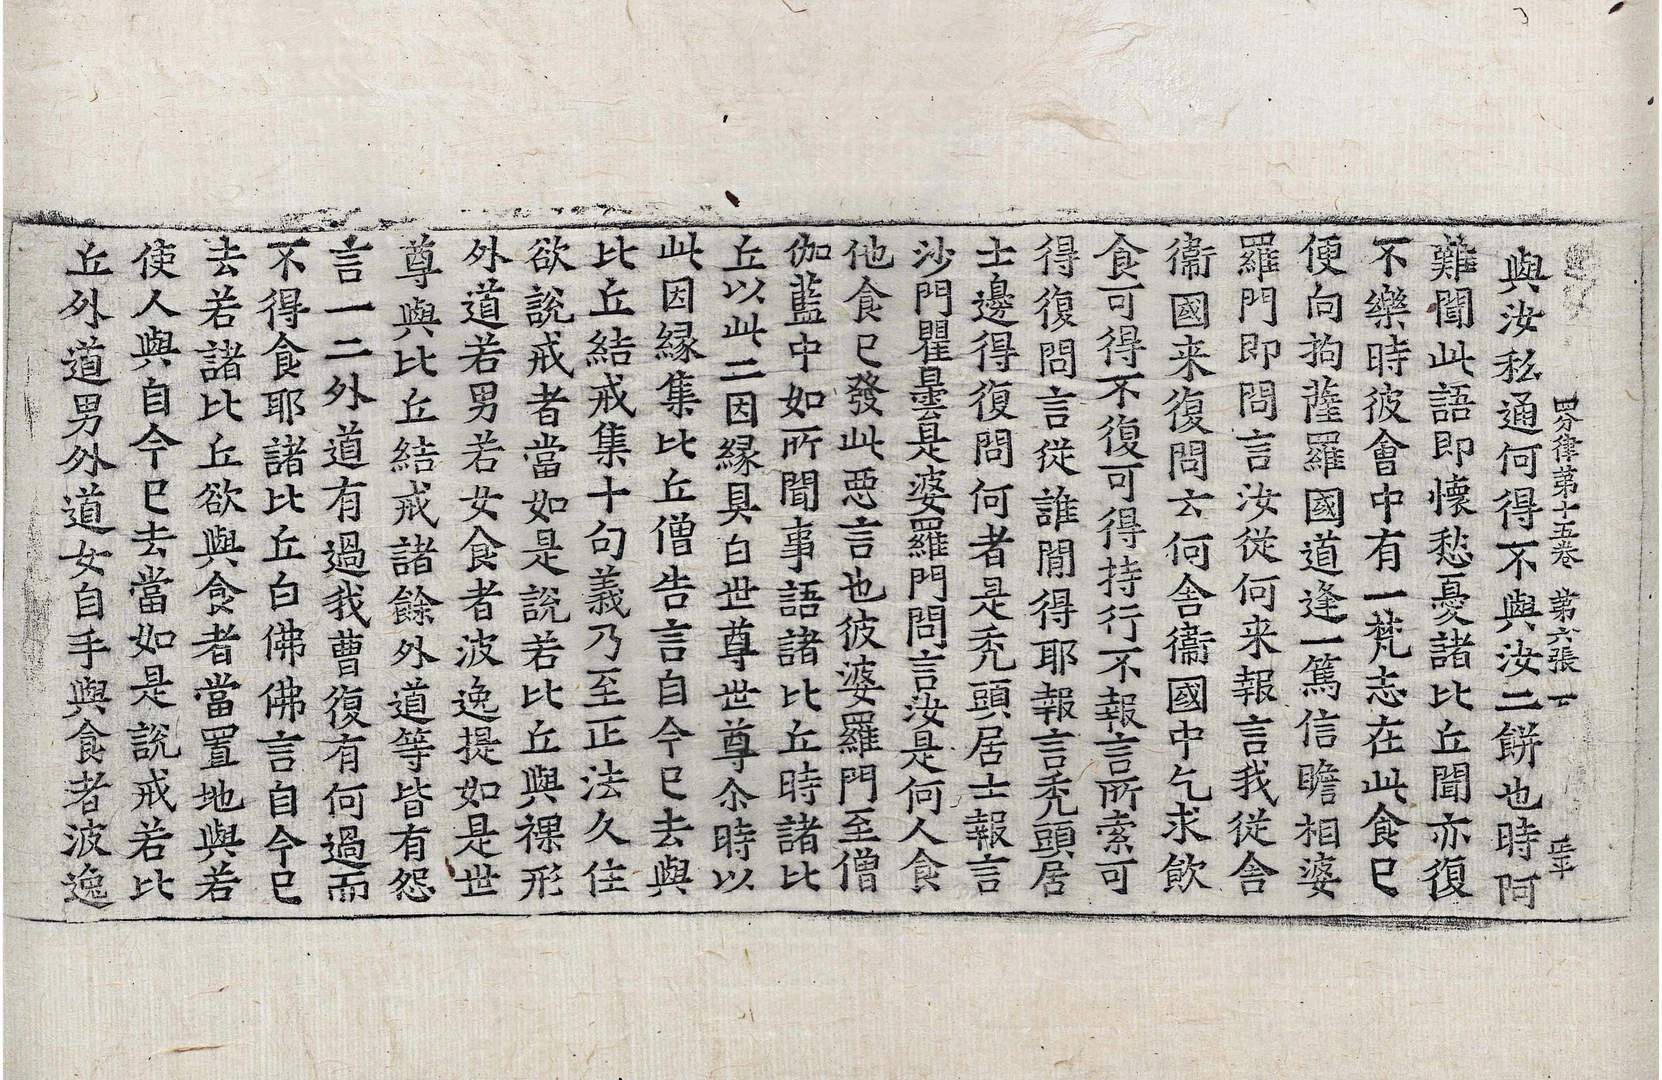 四分律第十五卷 第六張
與汝私通何得不與汝二餅也時阿
難聞此語即懷愁憂諸比丘聞亦復
不樂時彼會中有一梵志在此食已
便向拘薩羅國道逢一篤信瞻相婆
羅門即問言汝從何来報言我從舍
衞國来復問云何舍衞國中乞求飲
食可得不復可得持行不報言所索可
得復問言從誰間得耶報言禿頭居
士邊得復問何者是禿頭居士報言
沙門瞿曇是婆羅門問言汝是何人食
他食已發此惡言也彼婆羅門至僧
伽藍中如所聞事語諸比丘時諸比
丘以此二因緣具白世尊世尊尒時以
此因緣集比丘僧告言自今已去與
比丘結戒集十句義乃至正法久住
欲說戒者當如是說若比丘與裸形
外道若男若女食者波逸提如是世
尊與比丘結戒諸餘外道等皆有怨
言一二外道有過我曹復有何過而
不得食耶諸比丘白佛佛言自今已
去若諸比丘欲與食者當置地與若
使人與自今已去當如是說戒若比
丘外道男外道女自手與食者波逸